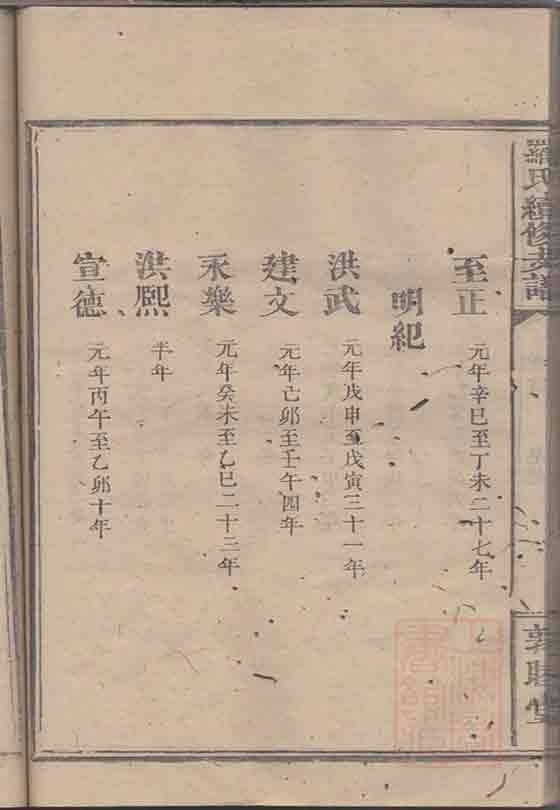 羅氏續修支譜
敦睦堂
至正 元年辛巳至丁未二十七年
明紀
洪武 元年戊申至戊寅三十一年
建文 元年己卯至壬午四年
永樂 元年癸未至乙巳二十三年
洪熙 半年
宣德 元年丙午至乙卯十年